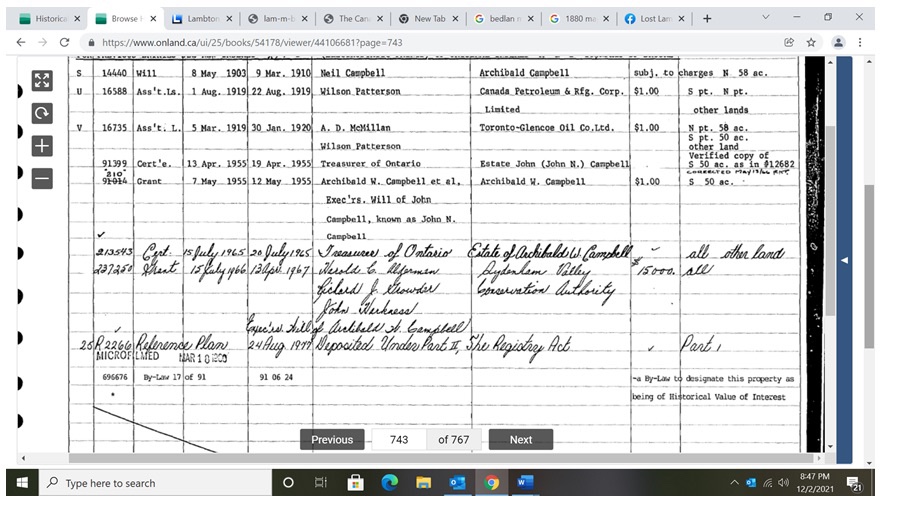 Historica Browse Lambton lam-m-b The Can New Tab bedlan 1880 ma Lost Lam
https://www.onland.ca/ui/25/books/54178/viewer/44106681?page=743
S 14440 Will 8 May 1903 9 Mar. 1910 Neil Campbell Archibald Campbell subj. to charges N 58 ac.
U 16588 Ass't.Ls. 1 Aug. 1919 22 Aug. 1919 Wilson Patterson Canada Petroleum & Rfg. Corp. $1.00 S pt. N pt.
Limited other lands
V 16735 Ass't. L. 5 Mar. 1919 30 Jan. 1920 A. D. McMillan Toronto-Glencoe Oil Co.Ltd. $1.00 N pt. 58 ac.
S pt. 50 ac.
Wilson Patterson other land
Verified copy of
91399 Cert'e. 13 Apr. 1955 19 Apr. 1955 Treasurer of Ontario Estate John (John N.) Campbell S 50 ac. as in #12682
210 CORRECTED MAY
91014 Grant 7 May 1955 12 May 1955 Archibald W. Campbell et al, Archibald W. Campbell $1.00 S 50 ac.
Exec'rs. Will of John
Campbell, known as John N.
Campbell
213543 Cert. 15 July 1965 20 July 1965 Treasurer of Ontario Estate of Archibald W. Campbell all other land
237250 Grant 15 July 1966 13 Apr. 1967 Harold C. Alderman Sydenham Valley $15000. all
Richard J. Conservation Authority
John Harkness
Exec'rs. Will of Archibald W. Campbell
25R2266 Reference Plan 24 Aug. 1977 Deposited Under Part II, The Registry Act Part 1
MICROFILMED MAR 10
696676 By-Law 17 of 91 91 06 24 -a By-Law to designate this property as
* being of Historical Value of Interest
Previous 743 of 767 Next
Type here to search
8:47 PM
12/2/2021
21